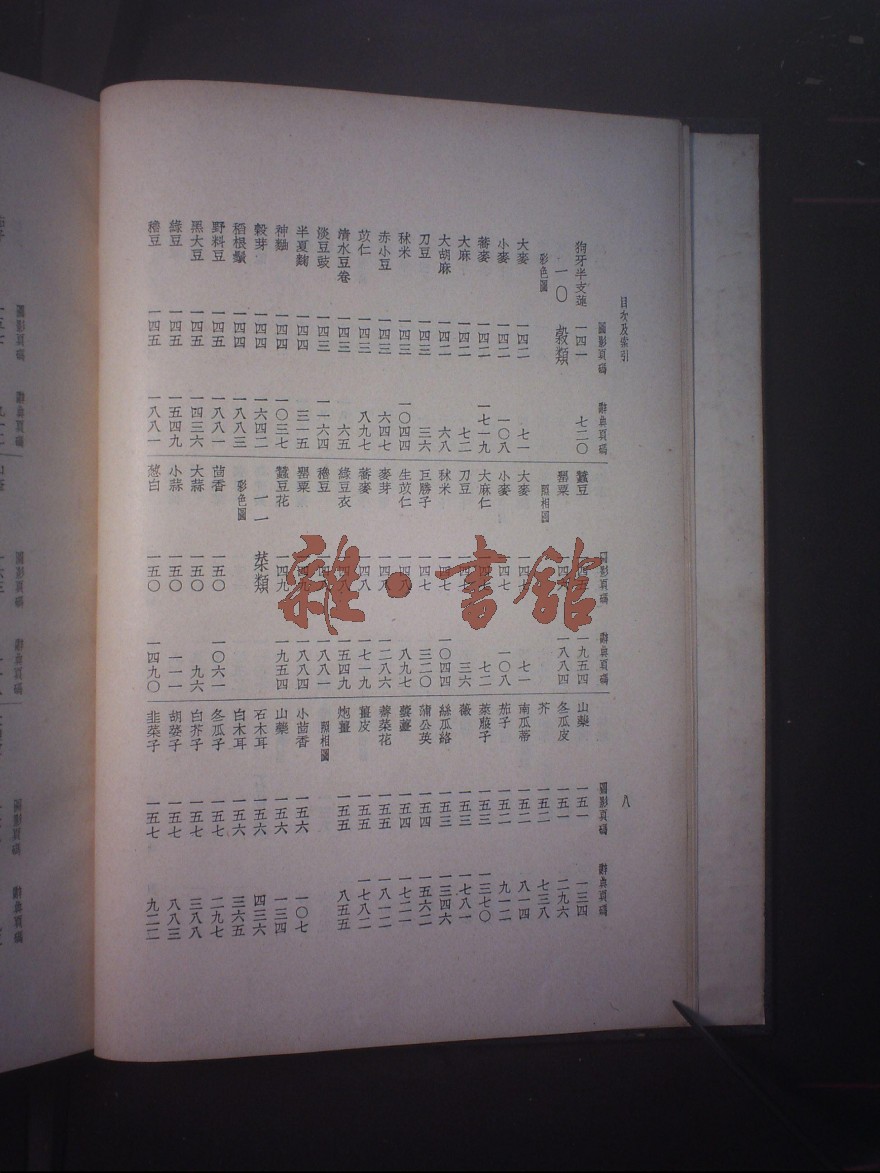 目次及索引 八
圖影頁碼 辭典頁碼
狗牙半支蓮 一四一 七二〇
一〇 穀類
彩色圖
大麥 一四二 七一
小麥 一四二 一〇八
蕎麥 一四二 一七一九
大麻 一四二 七二
大胡麻 一四二 六八
刀豆 一四三 三六
秫米 一四三 一〇四四
赤小豆 一四三 六四七
苡仁 一四三 八九七
清水豆卷 一四三 六五
淡豆豉 一四三 一一六四
半夏麴 一四四 三一五
神麯 一四四 一〇三七
穀芽 一四四 一六四二
稻根鬚 一四四 一八八三
野料豆 一四五 一八八一
黑大豆 一四五 一四三六
綠豆 一四五 一五四九
穭豆 一四五 一八八一
圖影頁碼 辭典頁碼
蠶豆 一九五四
罌粟 一八八四
照相圖
大麥 一四七 七一
小麥 一四七 一〇八
大麻仁 一四七 七二
刀豆 一四七 三六
秫米 一四七 一〇四四
巨勝子 一四七 三二〇
生苡仁 一四八 八九七
麥芽 一四八 一二八六
蕎麥 一四八 一七一九
綠豆衣 一四八 一五四九
穭豆 一八八一
罌粟 一四九 一八八四
蠶豆花 一四九 一九五四
一一 菜類
彩色圖
茴香 一五〇 一〇六一
大蒜 一五〇 九六
小蒜 一五〇 一一一
葱白 一五〇 一四九〇
圖影頁碼 辭典頁碼
山藥 一五一 一三四
冬瓜皮 一五一 二九六
芥 一五二 七三八
南瓜蒂 一五二 八一四
茄子 一五二 九一二
萊菔子 一五三 一三七〇
薇 一五三 一七八一
絲瓜絡 一五三 一三四六
蒲公英 一五四 一五六二
蘡薁 一五四 一七二一
蕹菜花 一五五 一八一二
薑皮 一五五 一七八二
炮薑 一五五 八五五
照相圖
小茴香 一五六 一〇七
山藥 一五六 一三四
石木耳 一五六 四三六
白木耳 一五六 三六五
冬瓜子 一五七 二九七
白芥子 一五七 三八八
胡荽子 一五七 八八三
韭菜子 一五七 九二二
雜·書館